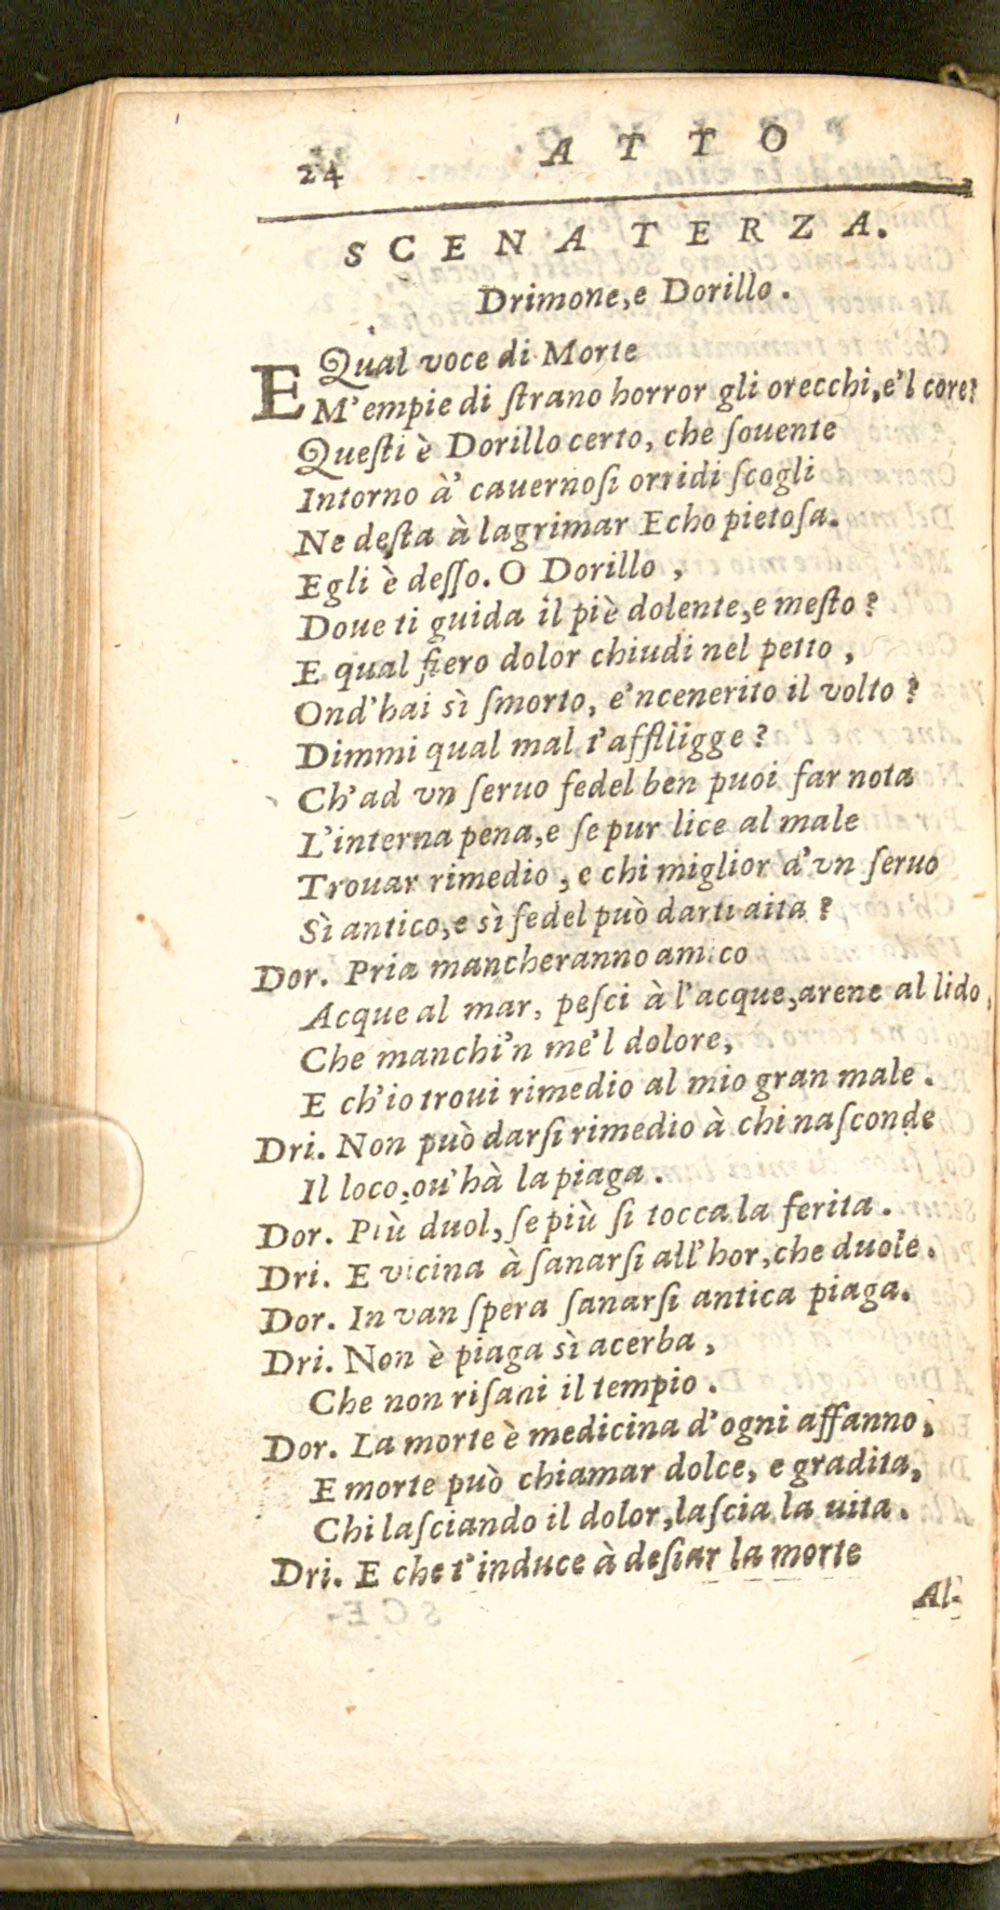 24 ATTO
SCENA TERZA.
Drimone, e Dorillo.
E Qual voce di Morte
M'empie di ſtrano horror gli orecchi, e'l core?
Queſti è Dorillo certo, che ſouente
Intorno à' cauernoſi orridi ſcogli
Ne deſta à lagrimar Echo pietoſa.
Egli è deſſo. O Dorillo,
Doue ti guida il piè dolente, e meſto?
E qual fiero dolor chiudi nel petto,
Ond'hai sì ſmorto, e'ncenerito il volto?
Dimmi qual mal t'affligge?
Ch'ad vn ſeruo fedel ben puoi far nota
L'interna pena, e ſe pur lice al male
Trouar rimedio, e chi miglior d'vn ſeruo
Sì antico, e sì fedel può darti aita?
Dor. Pria mancheranno amico
Acque al mar, peſci à l'acque, arene al lido,
Che manchi'n me'l dolore,
E ch'io troui rimedio al mio gran male.
Dri. Non può darſi rimedio à chi naſconde
Il loco, ou'hà la piaga.
Dor. Più duol, ſe più ſi tocca la ferita.
Dri. E vicina à ſanarſi all'hor, che duole.
Dor. In van ſpera ſanarſi antica piaga.
Dri. Non è piaga sì acerba,
Che non riſani il tempio.
Dor. La morte è medicina d'ogni affanno,
E morte può chiamar dolce, e gradita,
Chi laſciando il dolor, laſcia la uita.
Dri. E che t'induce à deſiar la morte
Al-